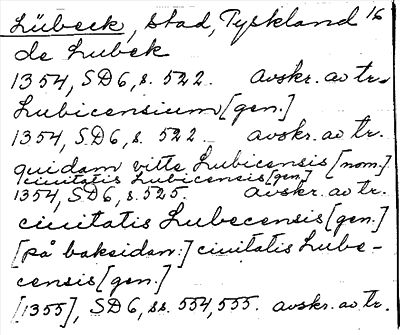 Lübeck, stad, Tyskland 16
de Lubek
1354, SD6, s. 522. avskr. av tr.
Lubicensium [gen.]
1354, SD6, s. 522 avskr. av tr.
quidam ville Lubicensis [nom.]
civitatis Lubicensis [gen.]
1354, SD6, s. 525. avskr. av tr.
civitatis Lubecensis [gen.]
[på baksidan:] civitatis Lube-
censis [gen.]
[1355], SD6, ss. 554, 555. avskr. av tr.